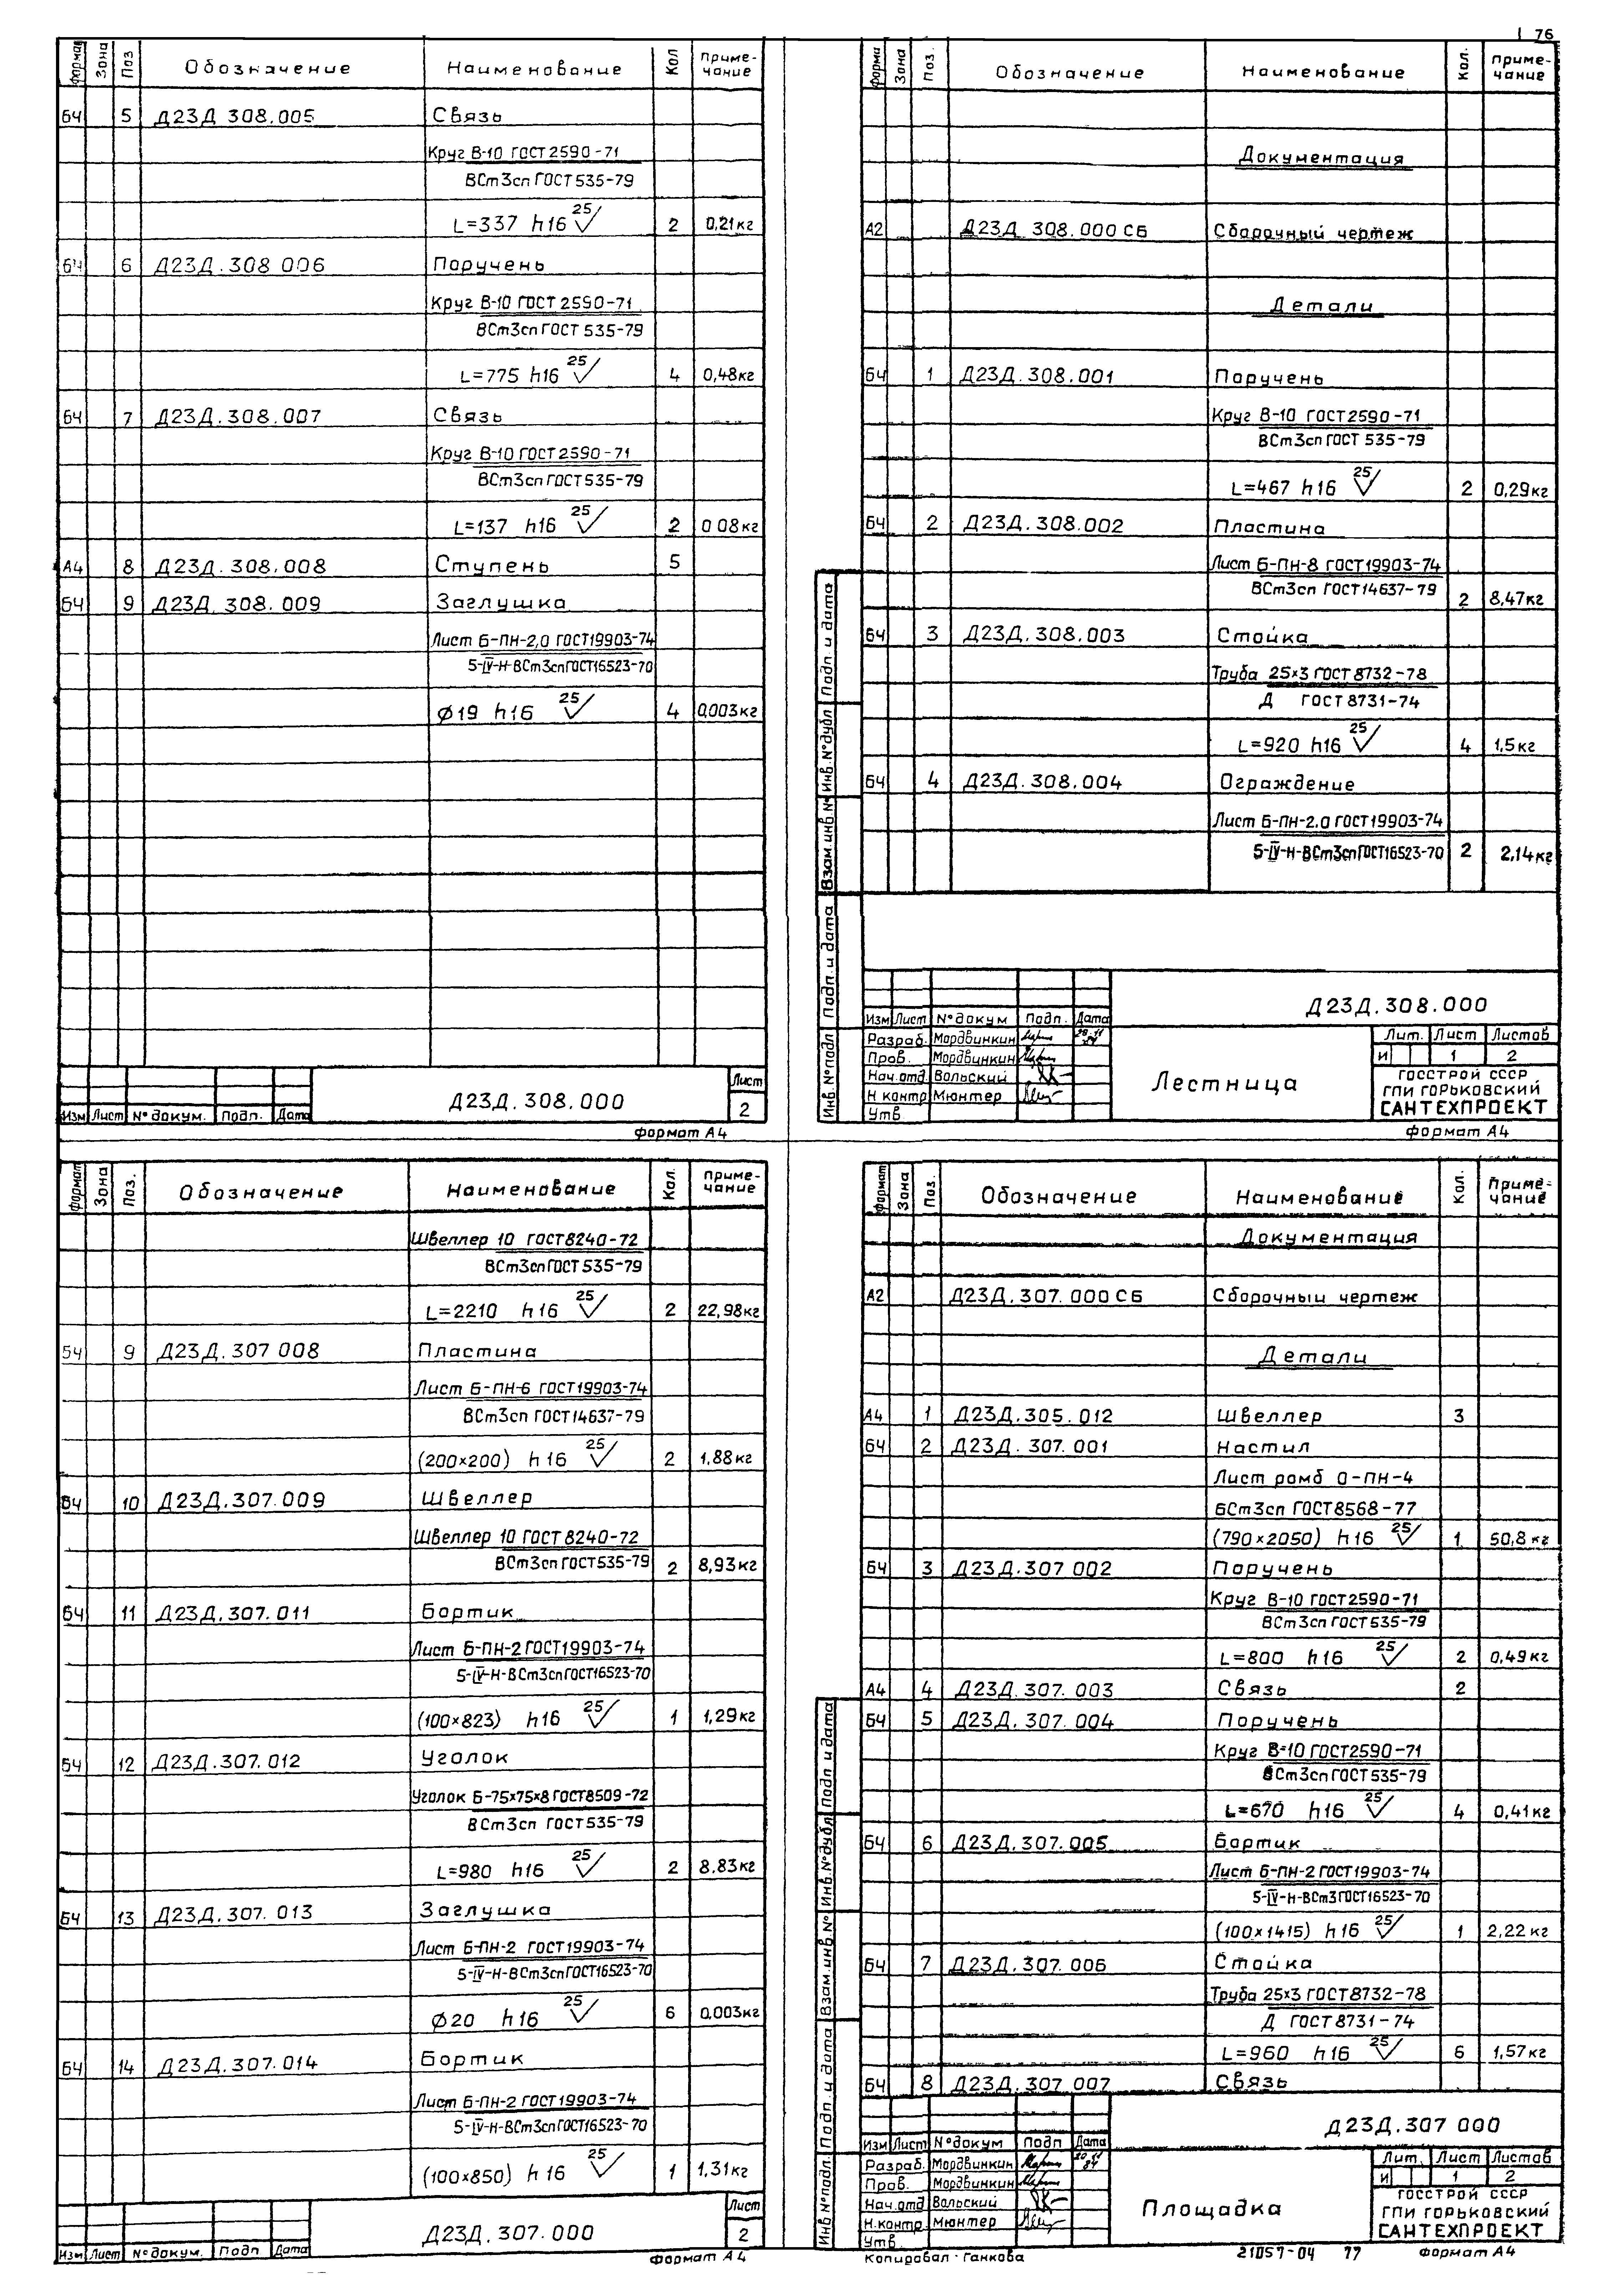 76
Формат Зона Поз Обозначение Наименование Кол Приме-
чание
БЧ 5 Д23Д 308.005 Связь
Круг В-10 ГОСТ 2590-71
ВСт3сп ГОСТ 535-79
L=337 h16 25 2 0,21кг
БЧ 6 Д23Д.308 006 Поручень
Круг В-10 ГОСТ 2590-71
ВСт3сп ГОСТ 535-79
L=775 h16 25 4 0,48кг
БЧ 7 Д23Д.308.007 Связь
Круг В-10 ГОСТ 2590-71
ВСт3сп ГОСТ 535-79
L=137 h16 25 2 0 08кг
А4 8 Д23Д.308.008 Ступень 5
БЧ 9 Д23Д.308.009 Заглушка
Лист Б-ПН-2,0 ГОСТ19903-74
5-IV-Н-ВСт3сп ГОСТ16523-70
Ø19 h16 25 4 0,003кг
Изм Лист № докум. Подп. Дата
Д23Д.308.000
Лист
2
Формат А4
Форма Зона Поз. Обозначение Наименование Кол. Приме-
чание
Документация
А2 Д23Д.308.000 СБ Сборочный чертеж
Детали
БЧ 1 Д23Д.308.001 Поручень
Круг В-10 ГОСТ 2590-71
ВСт3сп ГОСТ 535-79
L=467 h16 25 2 0,29кг
БЧ 2 Д23Д.308.002 Пластина
Лист Б-ПН-8 ГОСТ19903-74
ВСт3сп ГОСТ14637-79 2 8,47кг
БЧ 3 Д23Д.308.003 Стойка
Труба 25×3 ГОСТ 8732-78
Д ГОСТ 8731-74
L=920 h16 25 4 1,5кг
БЧ 4 Д23Д.308.004 Ограждение
Лист Б-ПН-2.0 ГОСТ19903-74
5-IV-Н-ВСт3сп ГОСТ16523-70 2 2,14кг
Инв № подл Подп. и дата Взам. инв № Инв. № дубл Подп и дата
Д23Д.308.000
Изм Лист № докум Подп. Дата
Разраб. Мордвинкин
Пров. Мордвинкин
Нач.отд Вольский
Н контр Мюнтер
Утв
Лестница
Лит. Лист Листов
И 1 2
ГОССТРОЙ СССР
ГПИ ГОРЬКОВСКИЙ
САНТЕХПРОЕКТ
Формат А4
Формат Зона Поз. Обозначение Наименование Кол. Приме-
чание
Швеллер 10 ГОСТ8240-72
ВСт3сп ГОСТ 535-79
L=2210 h16 25 2 22,98кг
БЧ 9 Д23Д.307 008 Пластина
Лист Б-ПН-6 ГОСТ19903-74
ВСт3сп ГОСТ14637-79
(200×200) h16 25 2 1,88кг
БЧ 10 Д23Д.307.009 Швеллер
Швеллер 10 ГОСТ 8240-72
ВСт3сп ГОСТ535-79 2 8,93кг
БЧ 11 Д23Д.307.011 Бортик
Лист Б-ПН-2 ГОСТ19903-74
5-IV-Н-ВСт3сп ГОСТ16523-70
(100×823) h16 25 1 1,29кг
БЧ 12 Д23Д.307.012 Уголок
Уголок Б-75×75×8 ГОСТ8509-72
ВСт3сп ГОСТ535-79
L=980 h16 25 2 8.83кг
БЧ 13 Д23Д.307.013 Заглушка
Лист Б-ПН-2 ГОСТ19903-74
5-IV-Н-ВСт3сп ГОСТ16523-70
Ø20 h16 25 6 0,003кг
БЧ 14 Д23Д.307.014 Бортик
Лист Б-ПН-2 ГОСТ19903-74
5-IV-Н-ВСт3сп ГОСТ16523-70
(100×850) h16 25 1 1,31кг
Изм Лист № докум. Подп Дата
Д23Д.307.000
Лист
2
Формат А4
Формат Зона Поз. Обозначение Наименование Кол. Приме-
чание
Документация
А2 Д23Д.307.000 СБ Сборочный чертеж
Детали
А4 1 Д23Д.305.012 Швеллер 3
БЧ 2 Д23Д.307.001 Настил
Лист ромб О-ПН-4
БСт3сп ГОСТ8568-77
(790×2050) h16 25 1 50,8кг
БЧ 3 Д23Д.307 002 Поручень
Круг В-10 ГОСТ2590-71
ВСт3сп ГОСТ535-79
L=800 h16 25 2 0,49кг
А4 4 Д23Д.307.003 Связь 2
БЧ 5 Д23Д.307.004 Поручень
Круг В-10 ГОСТ2590-71
ВСт3сп ГОСТ535-79
L=670 h16 25 4 0,41кг
БЧ 6 Д23Д.307.005 Бортик
Лист Б-ПН-2 ГОСТ19903-74
5-IV-Н-ВСт3ГОСТ16523-70
(100×1415) h16 25 1 2,22кг
БЧ 7 Д23Д.307.006 Стойка
Труба 25×3 ГОСТ8732-78
Д ГОСТ8731-74
L=960 h16 25 6 1,57кг
БЧ 8 Д23Д.307 007 Связь
Инв № подл. Подп. и дата Взам.инв № Инв. № дубл Подп и дата
Д23Д.307 000
Изм Лист № докум Подп Дата
Разраб. Мордвинкин
Пров. Мордвинкин
Нач.отд Вольский
Н.контр. Мюнтер
Утв
Площадка
Лит. Лист Листов
И 1 2
ГОССТРОЙ СССР
ГПИ ГОРЬКОВСКИЙ
САНТЕХПРОЕКТ
Копировал Ганкова 21057-04 77 Формат А4